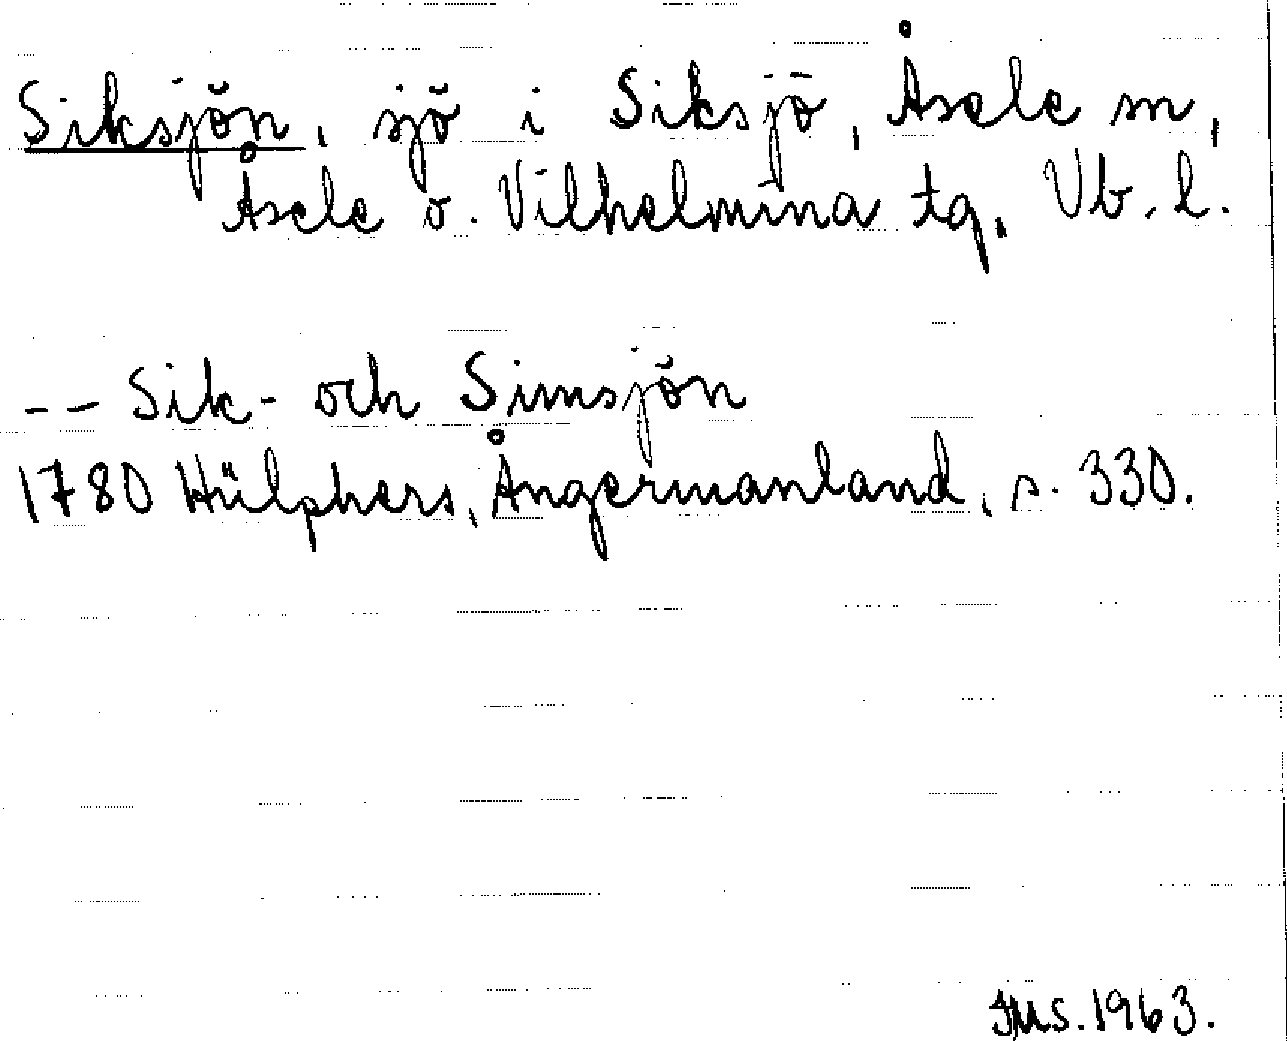 Siksjön, sjö i Siksjö, Åsele sn,
Åsele o. Vilhelmina tg, Vb. l.
-- Sik- och Simsjön
1780 Hülphers, Ångermanland, s. 330.
IMS. 1963.